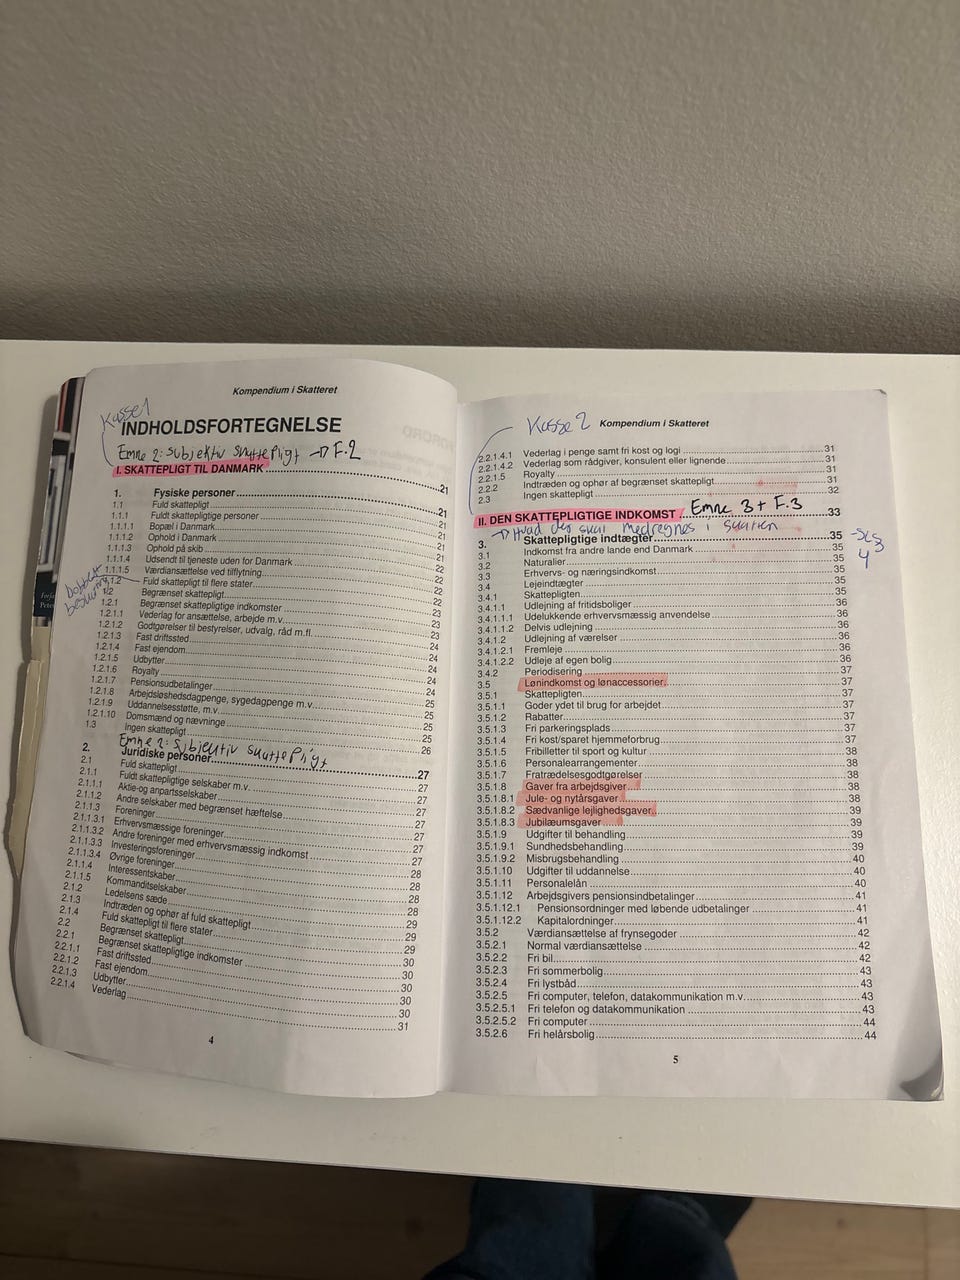 Kompendium i Skatteret
Kasse 1
INDHOLDSFORTEGNELSE
Emne 2: subjektiv skattepligt → F.2
I. SKATTEPLIGT TIL DANMARK ..... 21
1. Fysiske personer ..... 21
1.1 Fuld skattepligt ..... 21
1.1.1 Fuldt skattepligtige personer ..... 21
1.1.1.1 Bopæl i Danmark ..... 21
1.1.1.2 Ophold i Danmark ..... 21
1.1.1.3 Ophold på skib ..... 21
1.1.1.4 Udsendt til tjeneste uden for Danmark ..... 22
1.1.1.5 Værdiansættelse ved tilflytning ..... 22
1.1.2 Fuld skattepligt til flere stater ..... 22
1.2 Begrænset skattepligt ..... 22
1.2.1 Begrænset skattepligtige indkomster ..... 23
1.2.1.1 Vederlag for ansættelse, arbejde m.v. ..... 23
1.2.1.2 Godtgørelser til bestyrelser, udvalg, råd m.fl. ..... 23
1.2.1.3 Fast driftssted ..... 24
1.2.1.4 Fast ejendom ..... 24
1.2.1.5 Udbytter ..... 24
1.2.1.6 Royalty ..... 24
1.2.1.7 Pensionsudbetalinger ..... 24
1.2.1.8 Arbejdsløshedsdagpenge, sygedagpenge m.v. ..... 25
1.2.1.9 Uddannelsesstøtte, m.v. ..... 25
1.2.1.10 Domsmænd og nævninge ..... 25
1.3 Ingen skattepligt ..... 26
Emne 2: subjektiv skattepligt
2. Juridiske personer ..... 27
2.1 Fuld skattepligt ..... 27
2.1.1 Fuldt skattepligtige selskaber m.v. ..... 27
2.1.1.1 Aktie-og anpartsselskaber ..... 27
2.1.1.2 Andre selskaber med begrænset hæftelse ..... 27
2.1.1.3 Foreninger ..... 27
2.1.1.3.1 Erhvervsmæssige foreninger ..... 27
2.1.1.3.2 Andre foreninger med erhvervsmæssig indkomst ..... 27
2.1.1.3.3 Investeringsforeninger ..... 28
2.1.1.3.4 Øvrige foreninger ..... 28
2.1.1.4 Interessentskaber ..... 28
2.1.1.5 Kommanditselskaber ..... 28
2.1.2 Ledelsens sæde ..... 28
2.1.3 Indtræden og ophør af fuld skattepligt ..... 29
2.1.4 Fuld skattepligt til flere stater ..... 29
2.2 Begrænset skattepligt ..... 29
2.2.1 Begrænset skattepligtige indkomster ..... 30
2.2.1.1 Fast driftssted ..... 30
2.2.1.2 Fast ejendom ..... 30
2.2.1.3 Udbytter ..... 30
2.2.1.4 Vederlag ..... 31
4
Kasse 2
Kompendium i Skatteret
2.2.1.4.1 Vederlag i penge samt fri kost og logi ..... 31
2.2.1.4.2 Vederlag som rådgiver, konsulent eller lignende ..... 31
2.2.1.5 Royalty ..... 31
2.2.2 Indtræden og ophør af begrænset skattepligt ..... 31
2.3 Ingen skattepligt ..... 32
II. DEN SKATTEPLIGTIGE INDKOMST ..... 33 Emne 3 + F.3
→ Hvad der skal medregnes i skatten
3. Skattepligtige indtægter ..... 35
3.1 Indkomst fra andre lande end Danmark ..... 35
3.2 Naturalier ..... 35
3.3 Erhvervs- og næringsindkomst ..... 35
3.4 Lejeindtægter ..... 35
3.4.1 Skattepligten ..... 35
3.4.1.1 Udlejning af fritidsboliger ..... 36
3.4.1.1.1 Udelukkende erhvervsmæssig anvendelse ..... 36
3.4.1.1.2 Delvis udlejning ..... 36
3.4.1.2 Udlejning af værelser ..... 36
3.4.1.2.1 Fremleje ..... 36
3.4.1.2.2 Udleje af egen bolig ..... 36
3.4.2 Periodisering ..... 37
3.5 Lønindkomst og lønaccessorier ..... 37
3.5.1 Skattepligten ..... 37
3.5.1.1 Goder ydet til brug for arbejdet ..... 37
3.5.1.2 Rabatter ..... 37
3.5.1.3 Fri parkeringsplads ..... 37
3.5.1.4 Fri kost/sparet hjemmeforbrug ..... 37
3.5.1.5 Fribilletter til sport og kultur ..... 38
3.5.1.6 Personalearrangementer ..... 38
3.5.1.7 Fratrædelsesgodtgørelser ..... 38
3.5.1.8 Gaver fra arbejdsgiver ..... 38
3.5.1.8.1 Jule- og nytårsgaver ..... 38
3.5.1.8.2 Sædvanlige lejlighedsgaver ..... 39
3.5.1.8.3 Jubilæumsgaver ..... 39
3.5.1.9 Udgifter til behandling ..... 39
3.5.1.9.1 Sundhedsbehandling ..... 39
3.5.1.9.2 Misbrugsbehandling ..... 40
3.5.1.10 Udgifter til uddannelse ..... 40
3.5.1.11 Personalelån ..... 40
3.5.1.12 Arbejdsgivers pensionsindbetalinger ..... 41
3.5.1.12.1 Pensionsordninger med løbende udbetalinger ..... 41
3.5.1.12.2 Kapitalordninger ..... 41
3.5.2 Værdiansættelse af frynsegoder ..... 42
3.5.2.1 Normal værdiansættelse ..... 42
3.5.2.2 Fri bil ..... 42
3.5.2.3 Fri sommerbolig ..... 43
3.5.2.4 Fri lystbåd ..... 43
3.5.2.5 Fri computer, telefon, datakommunikation m.v. ..... 43
3.5.2.5.1 Fri telefon og datakommunikation ..... 43
3.5.2.5.2 Fri computer ..... 44
3.5.2.6 Fri helårsbolig ..... 44
5